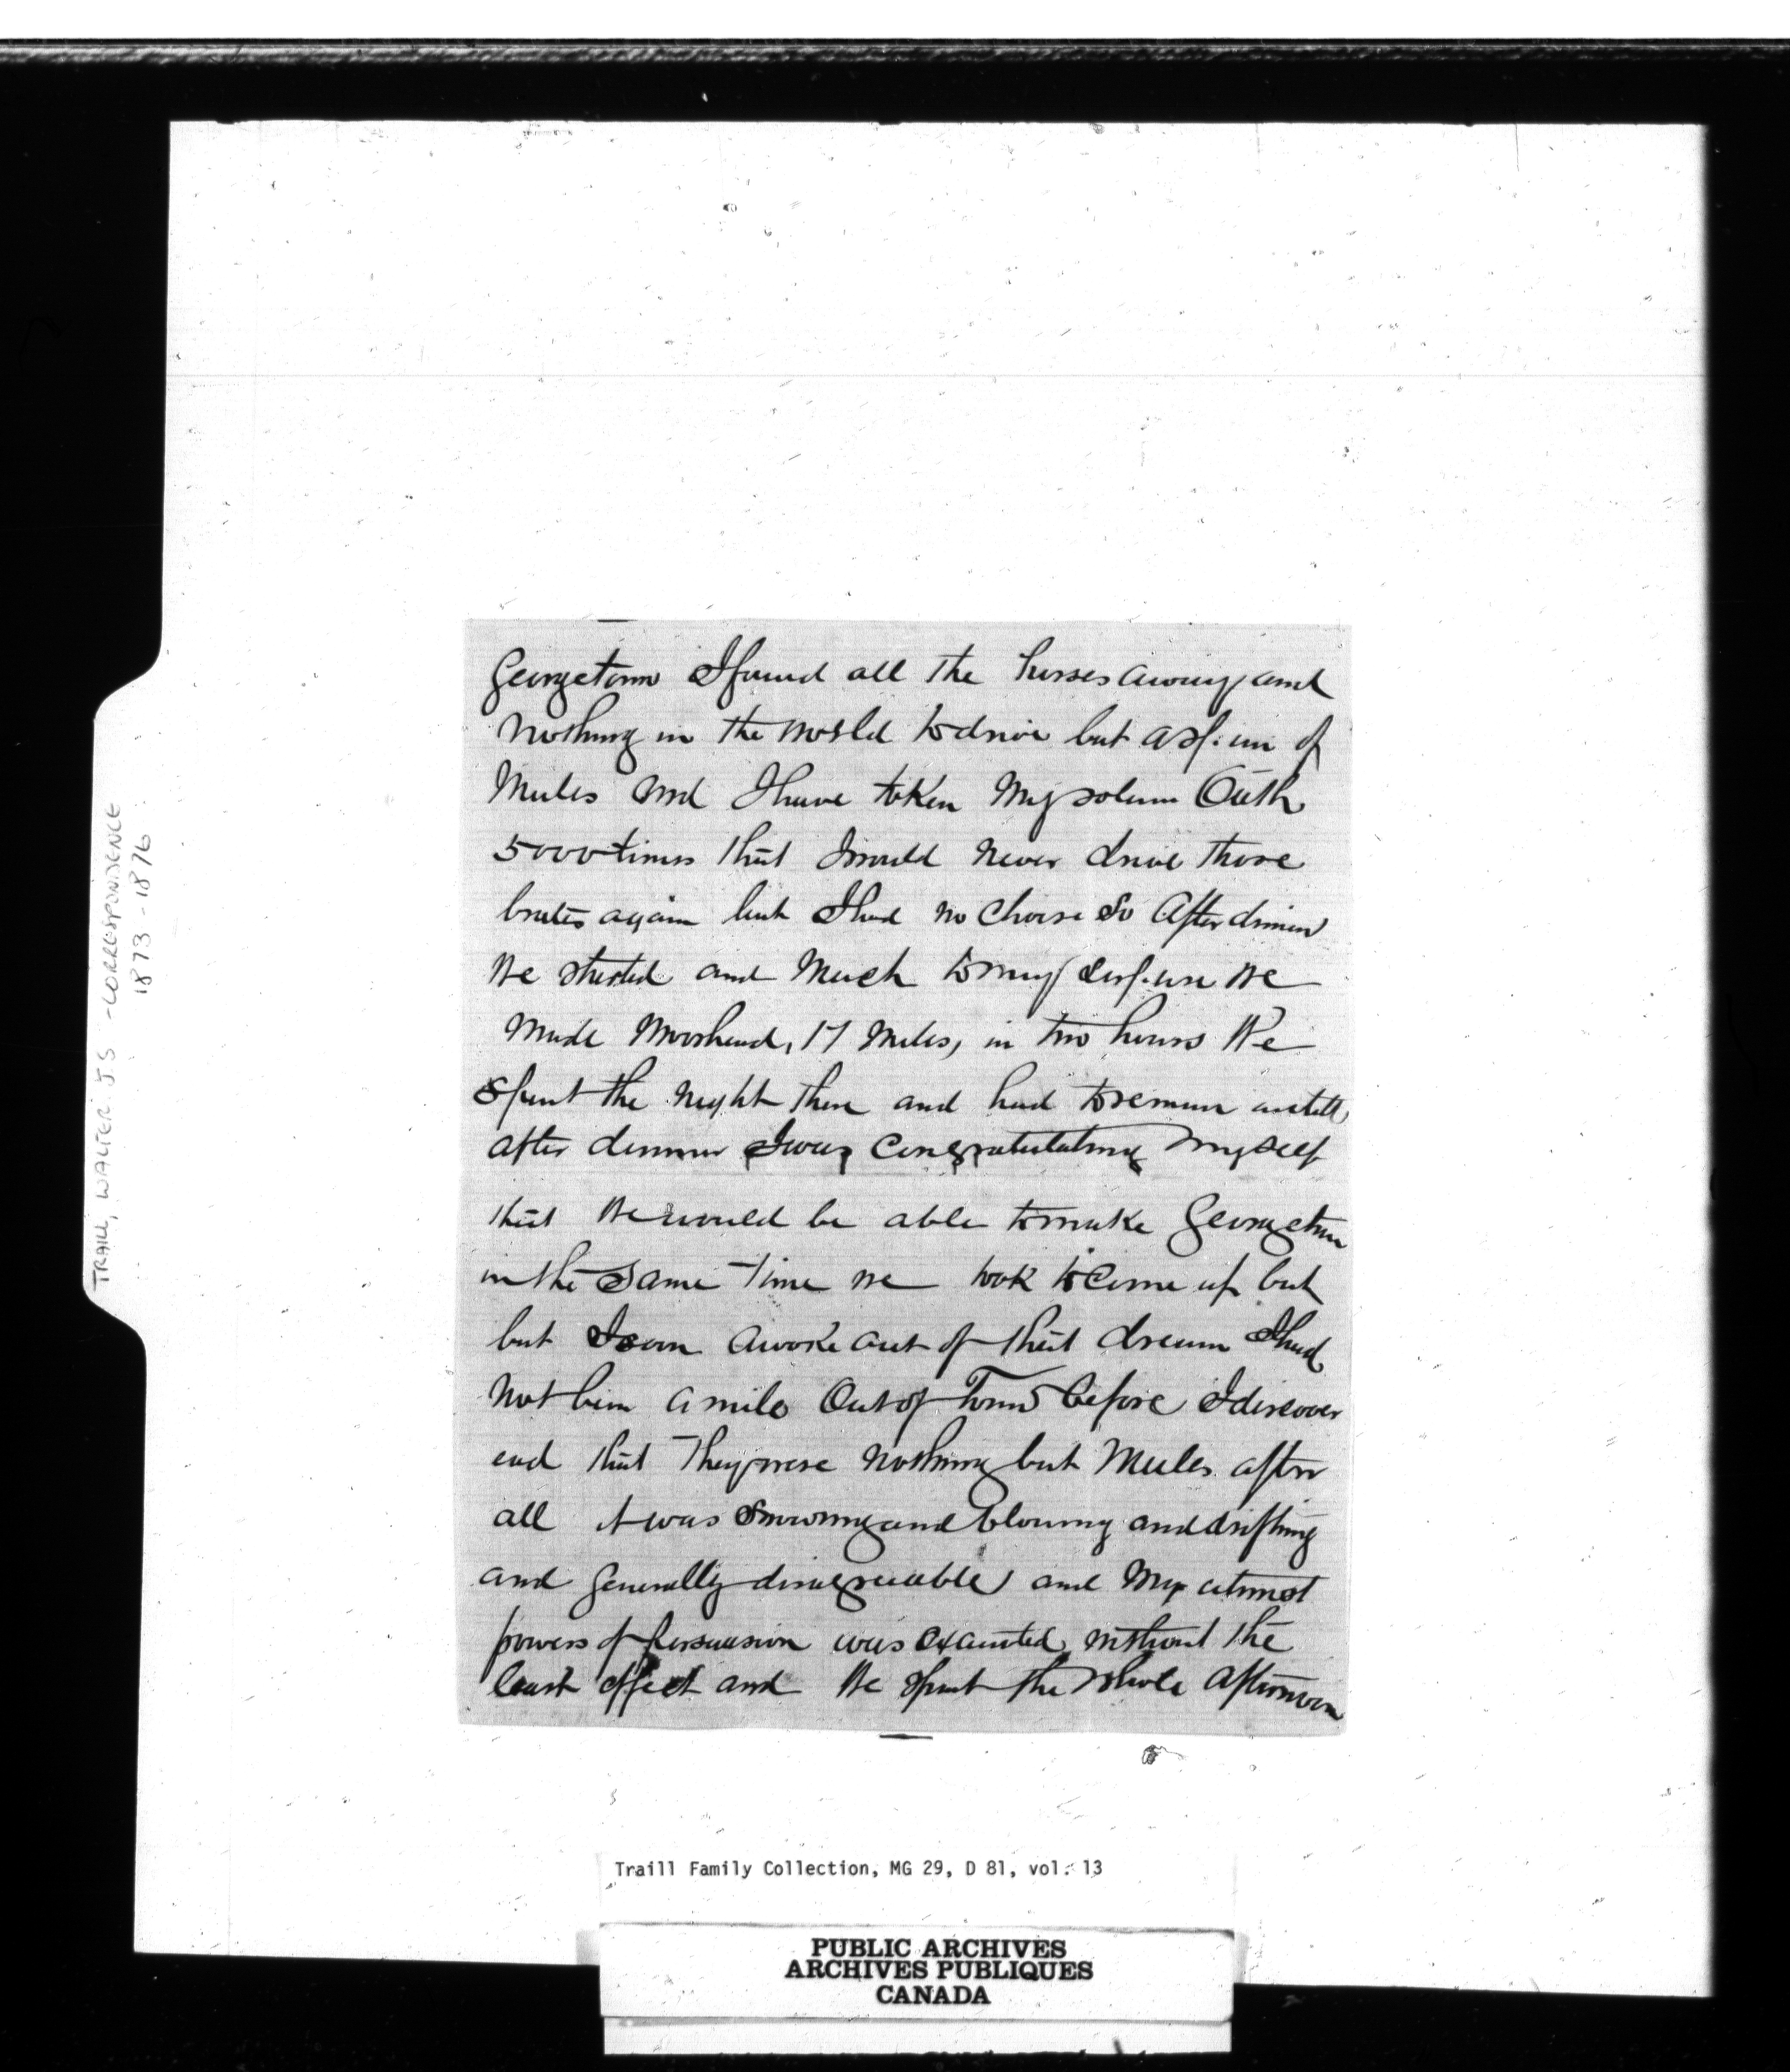 Georgetown I found all the horses away and
nothing in the world to drive but a span of
Mules and I have taken my solem Oath
5000 times that I would never drive those
brutes again but I had no choise So After dinner
We started and Much to my surprise We
Made Moorhead, 17 Miles, in two hours We
Spent the Night there and had to remain untill
after dinner I was Congratulating Myself
that We would be able to make Georgetown
in the Same Time we took to Come up but
but I soon awoke out of that dream I had
Not bin a mile Out of Town before I discover
end that They were Nothing but Mules after
all it was Snowing and blowing and drifting
and generally disagreeable and My utmost
powers of persuasion was exausted without the
least effect and We Spent the whole Afternoon
TRAILL, WALTER J.S. - CORRESPONDENCE
1873-1876
Traill Family Collection, MG 29, D 81, vol. 13
PUBLIC ARCHIVES
ARCHIVES PUBLIQUES
CANADA